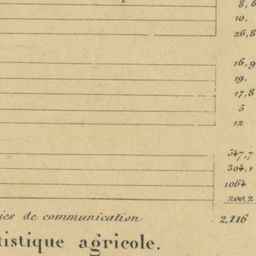 8,6
10.
26,8
16,9
19.
17,8
5
12
547,7
304,1
1064
200,2
de communication 2,116
tistique agricole.